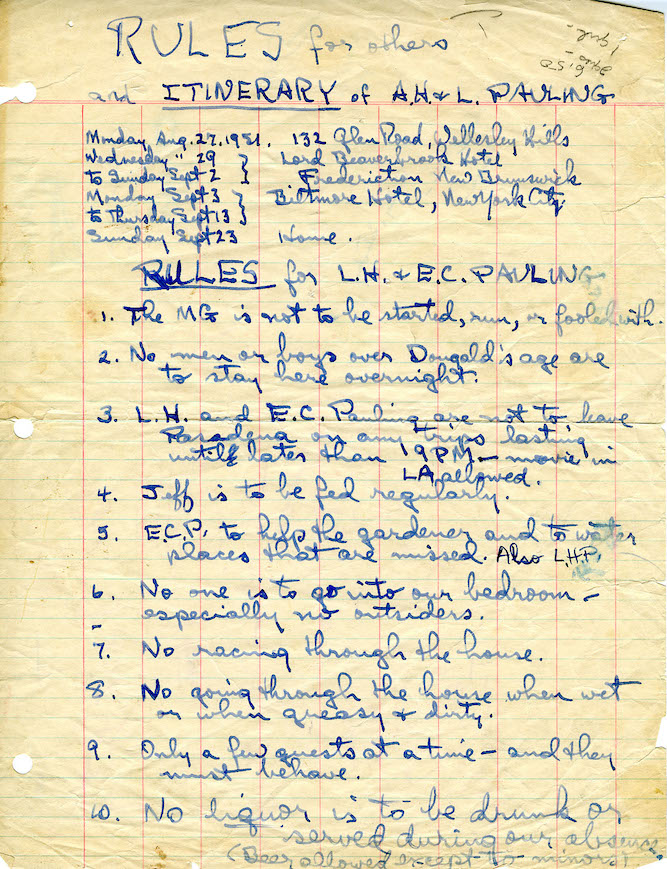 RULES for others
1 qut.
and ITINERARY of A.H. & L. PAULING
Monday, Aug. 27, 1951. 132 Glen Road, Wellesley Hills
Wednesday " 29 } Lord Beaverbrook Hotel
to Sunday Sept 2 } Fredericton New Brunswick
Monday Sept 3 } Biltmore Hotel, New York City
to Thursday Sept 13 }
Sunday Sept 23 Home.
RULES for L.H. & E.C. PAULING
1. The MG is not to be started, run, or fooled with.
2. No men or boys over Dougald's age are
to stay here overnight.
3. L.H. and E.C. Pauling are not to leave
Pasadena on any trips lasting
until later than 9 PM – movie in
LA allowed.
4. Jeff is to be fed regularly.
5. E.C.P. to help the gardener and to water
places that are missed. Also L.H.P.
6. No one is to go into our bedroom –
especially no outsiders.
7. No racing through the house.
8. No going through the house when wet
or when greasy & dirty.
9. Only a few guests at a time – and they
must behave.
10. No liquor is to be drunk or
served during our absence.
(Beer allowed except to minors)